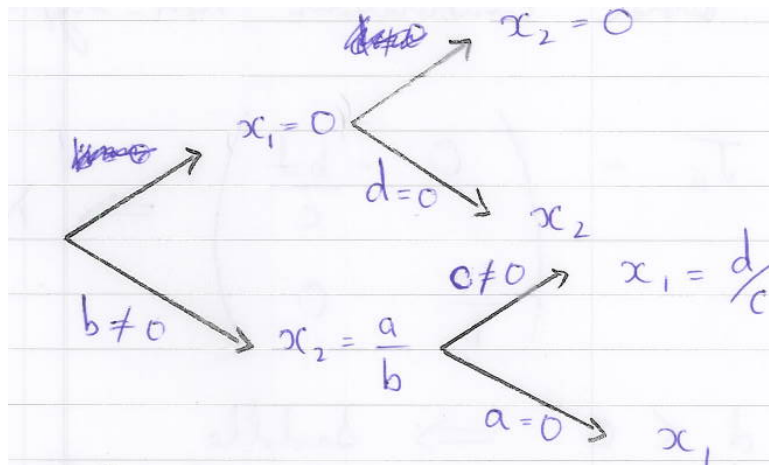 x₂ = 0
x₁ = 0
d=0
x₂
c≠0
x₁ = d/c
b≠0
x₂ = a/b
a=0
x₁